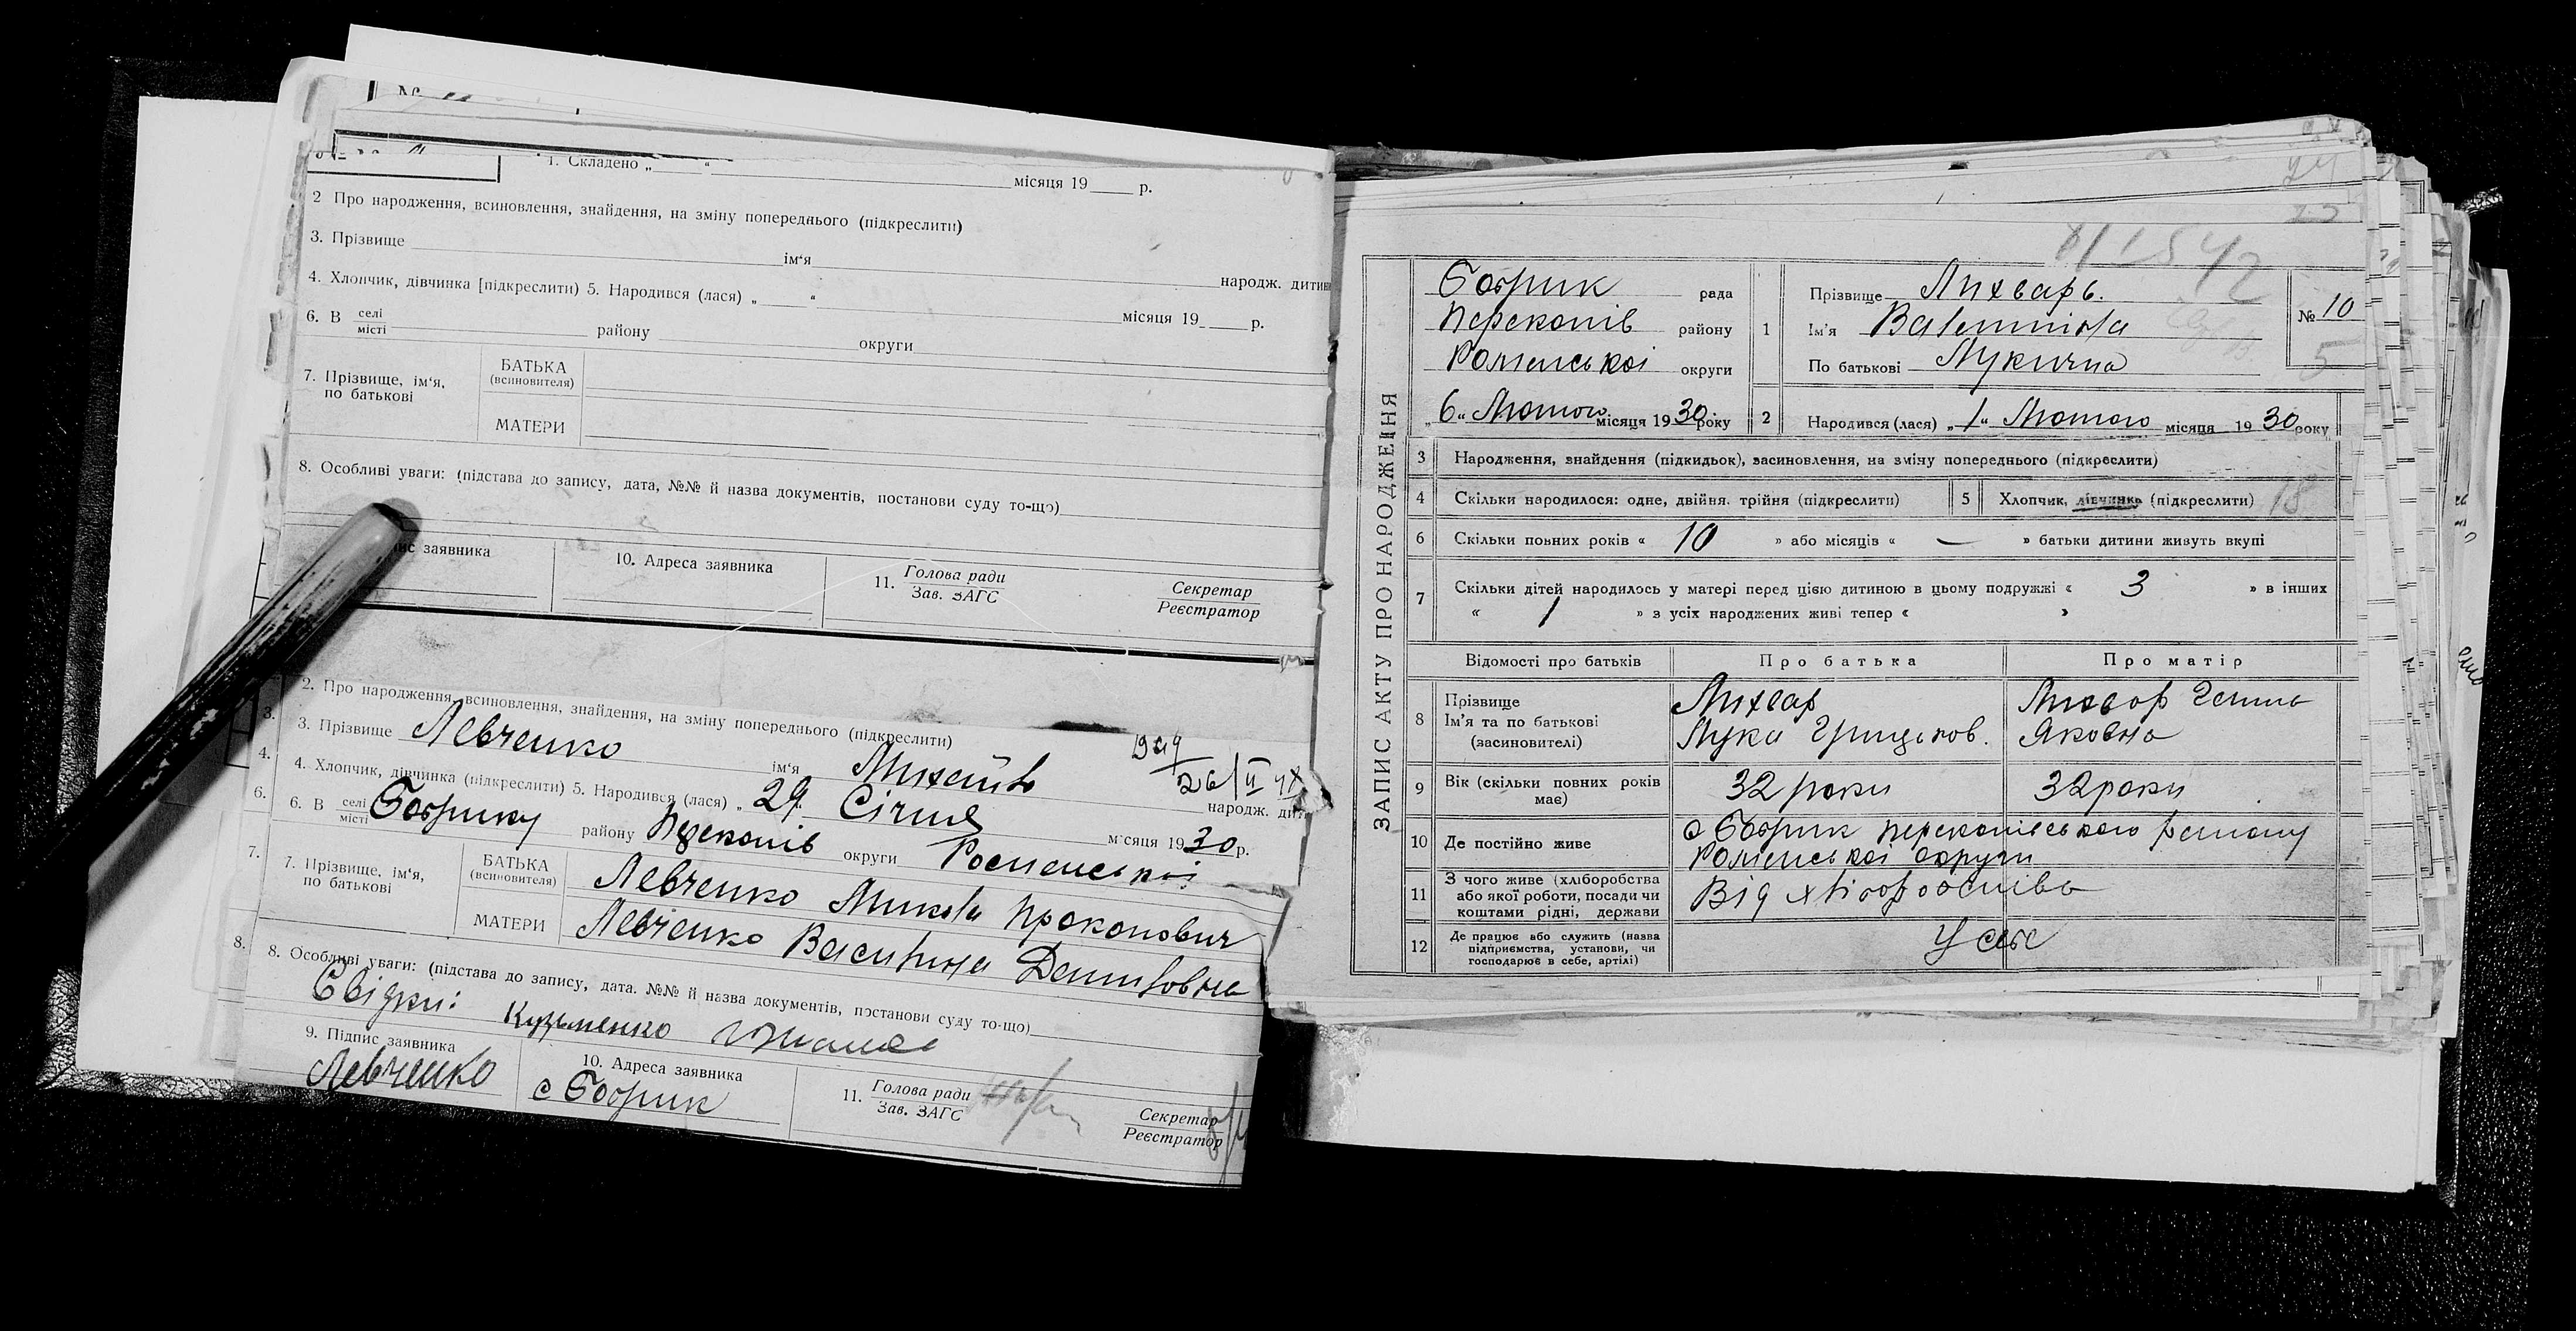 №
1. Складено „ “ місяця 19 р.
2 Про народження, всиновлення, знайдення, на зміну попереднього (підкреслити)
3. Прізвище ім‘я народж. дитини
4. Хлопчик, дівчинка [підкреслити) 5. Народився (лася) „ “ місяця 19 р.
6. В селі місті району округи
7. Прізвище, ім‘я, по батькові
БАТЬКА (всиновителя)
МАТЕРИ
8. Особливі уваги: (підстава до запису, дата, №№ й назва документів, постанови суду то-що)
заявника
10. Адреса заявника
11. Голова ради Зав. ЗАГС
Секретар Реєстратор
2. Про народження, всиновлення, знайдення, на зміну попереднього (підкреслити)
3. Прізвище Левченко ім‘я Михайло народж. дит
4. Хлопчик, дівчинка (підкреслити) 5. Народився (лася) „ 29 Січня місяця 1930 р.
6. В селі місті Бобрику району Перекопів округи Роменської
7. Прізвище, ім‘я, по батькові
БАТЬКА (всиновителя) Левченко Микола Прокопович
МАТЕРИ Левченко Василина Даниловна
8. Особливі уваги: (підстава до запису, дата. №№ й назва документів, постанови суду то-що)
Свідки: Кузьменко
9. Підпис заявника
Левченко
10. Адреса заявника
с Бобрик
11. Голова ради Зав. ЗАГС
Секретар Реєстратор
3.
4.
6.
7.
8.
ЗАПИС АКТУ ПРО НАРОДЖЕННЯ
Бобрик рада
Перекопів району
Роменської округи
„6“ Лютого місяця 1930 року
1 Прізвище Лихварь.
Ім’я Валентина
По батькові Лукична
№ 10
5
2 Народився (лася) „1“ Лютого місяця 1930 року
3 Народження, знайдення (підкидьок), засиновлення, на зміну попереднього (підкреслити)
4 Скільки народилося: одне, двійня, трійня (підкреслити)
5 Хлопчик, дівчинка (підкреслити) 18
6 Скільки повних років « 10 » або місяців « — » батьки дитини живуть вкупі
7 Скільки дітей народилось у матері перед цією дитиною в цьому подружжі « 3 » в інших
« 1 » з усіх народжених живі тепер « »
Відомості про батьків Про батька Про матір
8 Прізвище Ім’я та по батькові (засиновителі)
Лихвар Лука Грицьков.
Лихвар Ганна Яковна
9 Вік (скільки повних років має) 32 роки 32 роки
10 Де постійно живе с Бобрик Перекопівського району
Роменської округи
11 З чого живе (хліборобства або якої роботи, посади чи коштами рідні, держави
Від хліборобства
12 Де працює або служить (назва підприємства, установи, чи господарює в себе, артілі)
У себе